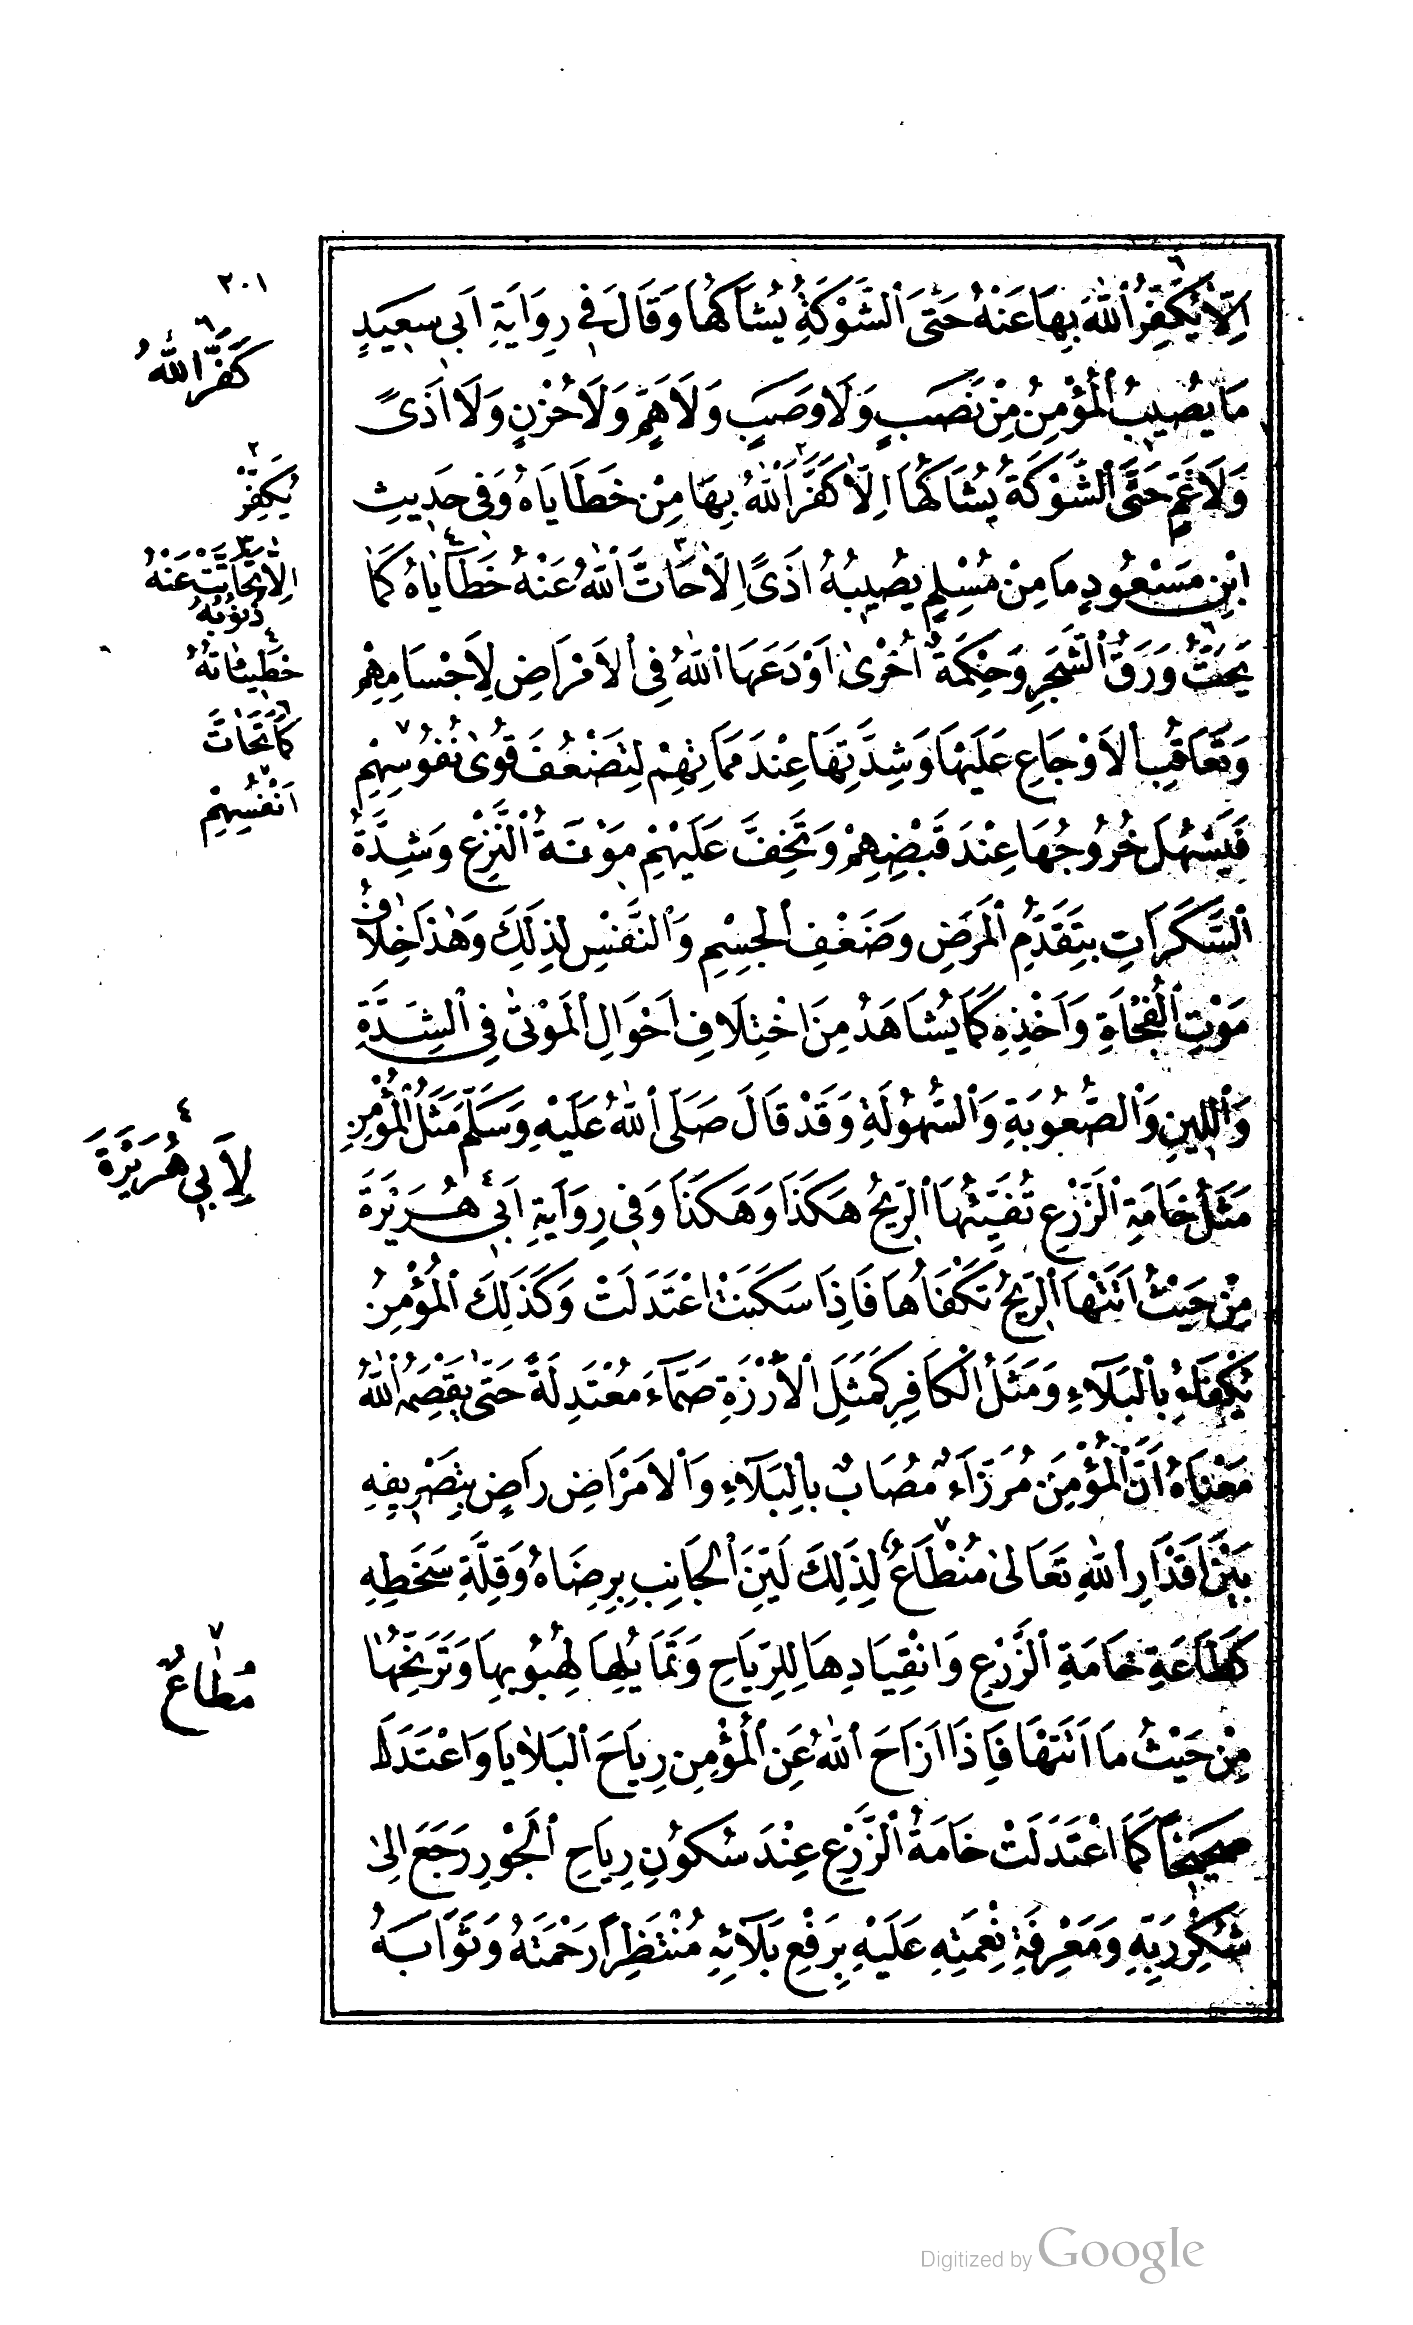 ٢٠١
اِلَّا يُكَفِّرُ ٱللهُ بِهَا عَنْهُ حَتَّى ٱلشَّوْكَةُ يُشَاكُهَا وَقَالَ فِي رِوَايَةِ اَبِي سَعِيدٍ
مَا يُصِيبُ ٱلْمُؤْمِنَ مِنْ نَصَبٍ وَلَا وَصَبٍ وَلَا هَمٍّ وَلَا حُزْنٍ وَلَا اَذًى
وَلَا غَمٍّ حَتَّى ٱلشَّوْكَةُ يُشَاكُهَا اِلَّا كَفَّرَ ٱللهُ بِهَا مِنْ خَطَايَاهُ وَفِي حَدِيثِ
ابْنِ مَسْعُودٍ مَا مِنْ مُسْلِمٍ يُصِيبُهُ اَذًى اِلَّا حَاتَّ ٱللهُ عَنْهُ خَطَايَاهُ كَمَا
يُحَتُّ وَرَقُ ٱلشَّجَرِ وَحِكْمَةٌ اُخْرٰى اَوْدَعَهَا ٱللهُ فِي ٱلاَمْرَاضِ لِاَجْسَامِهِمْ
وَتَعَاقُبِ ٱلاَوْجَاعِ عَلَيْهَا وَشِدَّتِهَا عِنْدَ مَمَاتِهِمْ لِتَضْعُفَ قُوٰى نُفُوسِهِمْ
فَيَسْهُلَ خُرُوجُهَا عِنْدَ قَبْضِهِمْ وَتَخِفَّ عَلَيْهِمْ مَوْنَةُ ٱلنَّزْعِ وَشِدَّةُ
ٱلسَّكَرَاتِ بِتَقَدُّمِ ٱلْمَرَضِ وَضَعْفِ ٱلْجِسْمِ وَٱلنَّفْسِ لِذٰلِكَ وَهٰذَا خِلَافُ
مَوْتِ ٱلْفُجْأَةِ وَاَخْذِهِ كَمَا يُشَاهَدُ مِنَ اخْتِلَافِ اَحْوَالِ ٱلْمَوْتٰى فِي ٱلشِّدَّةِ
وَٱللِّينِ وَٱلصُّعُوبَةِ وَٱلسُّهُولَةِ وَقَدْ قَالَ صَلَّى ٱللهُ عَلَيْهِ وَسَلَّمَ مَثَلُ ٱلْمُؤْمِنِ
مَثَلُ خَامَةِ ٱلزَّرْعِ تُفَيِّئُهَا ٱلرِّيحُ هَكَذَا وَهَكَذَا وَفِي رِوَايَةِ اَبِي هُرَيْرَةَ
مِنْ حَيْثُ اَتَتْهَا ٱلرِّيحُ تَكْفَأُهَا فَاِذَا سَكَنَتْ اعْتَدَلَتْ وَكَذَلِكَ ٱلْمُؤْمِنُ
يُكْفَاءُ بِالْبَلَآءِ وَمَثَلُ الْكَافِرِ كَمَثَلِ ٱلاَرْزَةِ صَمَّآءَ مُعْتَدِلَةً حَتّٰى يَقْصِمَهُ ٱللهُ
مَعْنَاهُ اَنَّ ٱلْمُؤْمِنَ مُرَزَّاءٌ مُصَابٌ بِالْبَلَآءِ وَٱلاَمْرَاضِ رَاضٍ بِتَصْرِيفِهِ
بَيْنَ اَقْدَارِ ٱللهِ تَعَالٰى مُنْطَاعٌ لِذَلِكَ لَيِّنُ ٱلْجَانِبِ بِرِضَاهُ وَقِلَّةِ سَخَطِهِ
كَطَاعَةِ خَامَةِ ٱلزَّرْعِ وَانْقِيَادِهَا لِلرِّيَاحِ وَتَمَايُلِهَا لِهُبُوبِهَا وَتَرَنُّحِهَا
مِنْ حَيْثُ مَا اَتَتْهَا فَاِذَا اَزَاحَ ٱللهُ عَنِ ٱلْمُؤْمِنِ رِيَاحَ ٱلْبَلَايَا وَاعْتَدَلَ
صَحِيحًا كَمَا اعْتَدَلَتْ خَامَةُ ٱلزَّرْعِ عِنْدَ سُكُونِ رِيَاحِ ٱلْجَوِّ رَجَعَ اِلٰى
شُكْرِ رَبِّهِ وَمَعْرِفَةِ نِعْمَتِهِ عَلَيْهِ بِرَفْعِ بَلَآئِهِ مُنْتَظِرًا رَحْمَتَهُ وَثَوَابَهُ
٦
كَفَّرَ ٱللهُ
٢
يُكَفِّرُ
٣
اِلَّا تَحَاتَّتْ عَنْهُ
ذُنُوبُهُ
٤
خَطِيئَاتُهُ
٦
كَمَا تَحَاتَّ
٧
اَنْفُسِهِمْ
٤
لِاَبِي هُرَيْرَةَ
٧
مُطَاعٌ
Digitized by Google